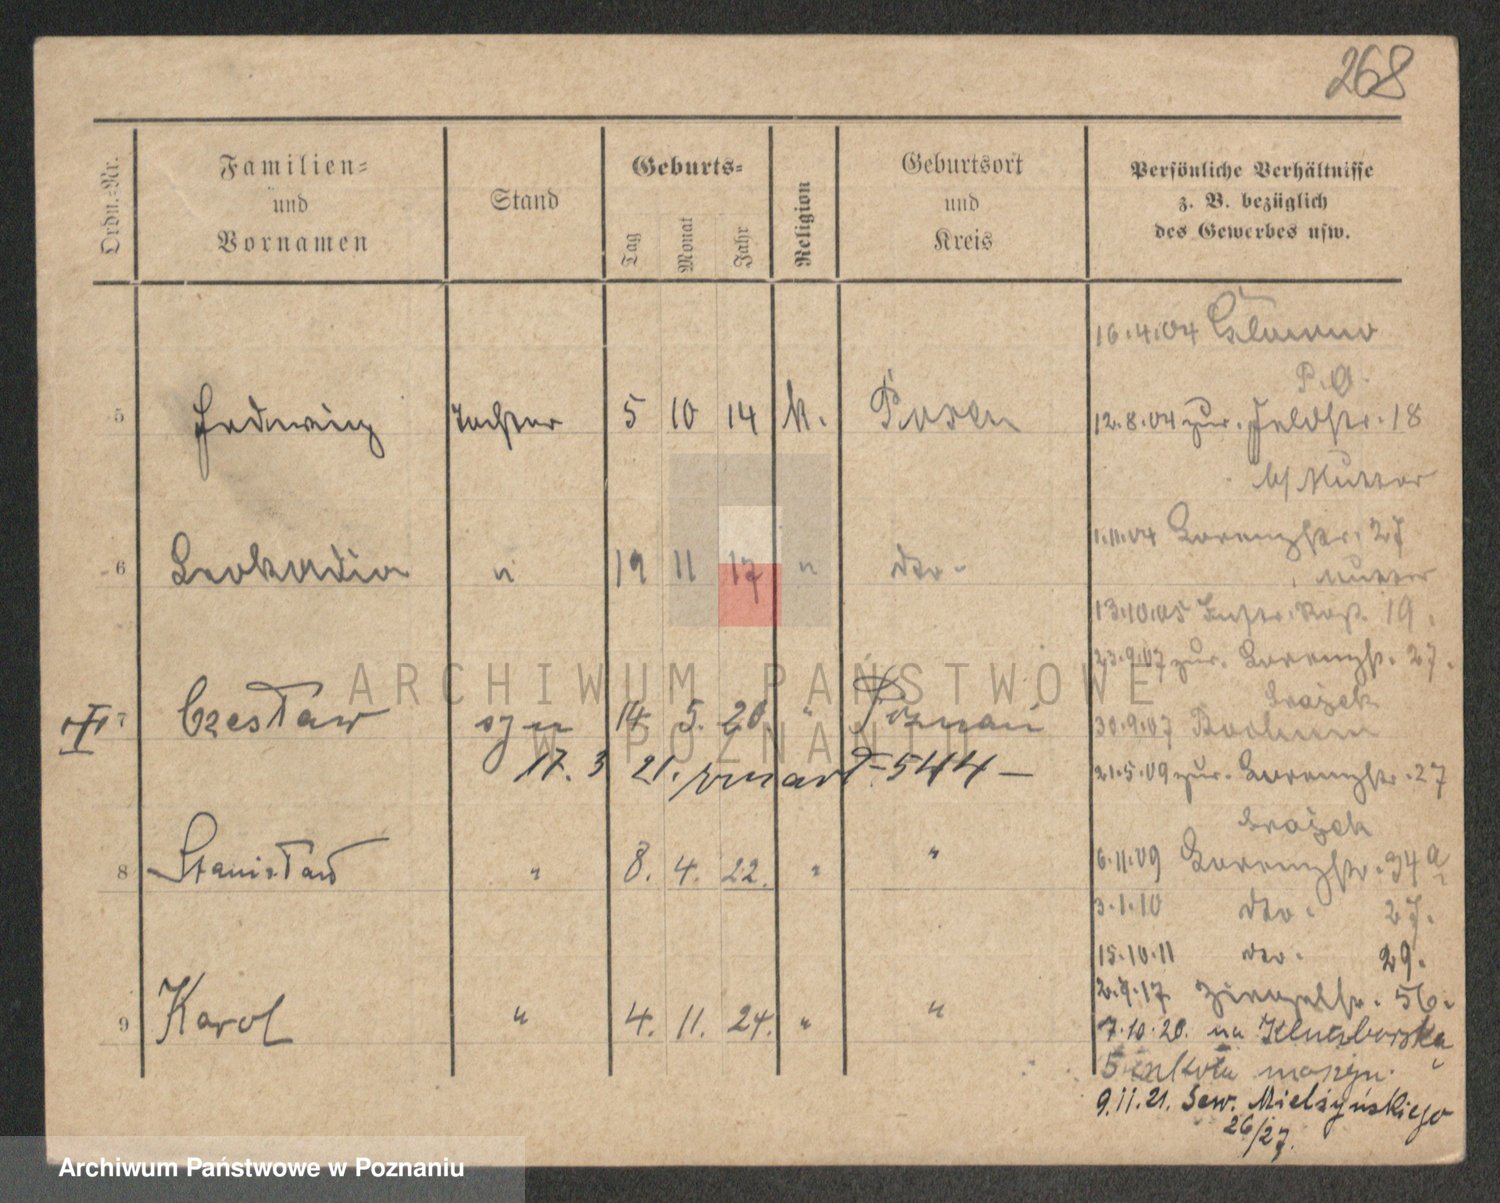 268
Ordn.-Nr.
Familien-
und
Vornamen
Stand
Geburts-
Tag
Monat
Jahr
Religion
Geburtsort
und
Kreis
Persönliche Verhältnisse
z. B. bezüglich
des Gewerbes usw.
16.4.04 Glowno
P.O.
5 Hedwig Tochter 5 10 14 k. Posen
12.8.04 zur. Feldstr. 18
b/ Mutter
6 Leokadia " 19 11 17 " dto.
1.11.04 Lorenzstr. 27
Mutter
13.10.05 19.
23.9.07 zur. Lorenzstr. 27.
7 Czesław syn 14 5. 20 " Poznań
30.9.07 Bochum
17. 3 21. zmarł 544
21.5.09 zur. Lorenzstr. 27
8 Stanisław " 8. 4. 22. " "
6.11.09 Lorenzstr. 34a
3.1.10 dto. 27.
15.10.11 dto. 29.
9 Karol " 4. 11. 24. " "
2.9.17 56.
7.10.20. na Kluczborską
5 szkoła
9.11.21. Sew. Mielżyńskiego
26/27.
ARCHIWUM PAŃSTWOWE
W POZNANIU
Archiwum Państwowe w Poznaniu